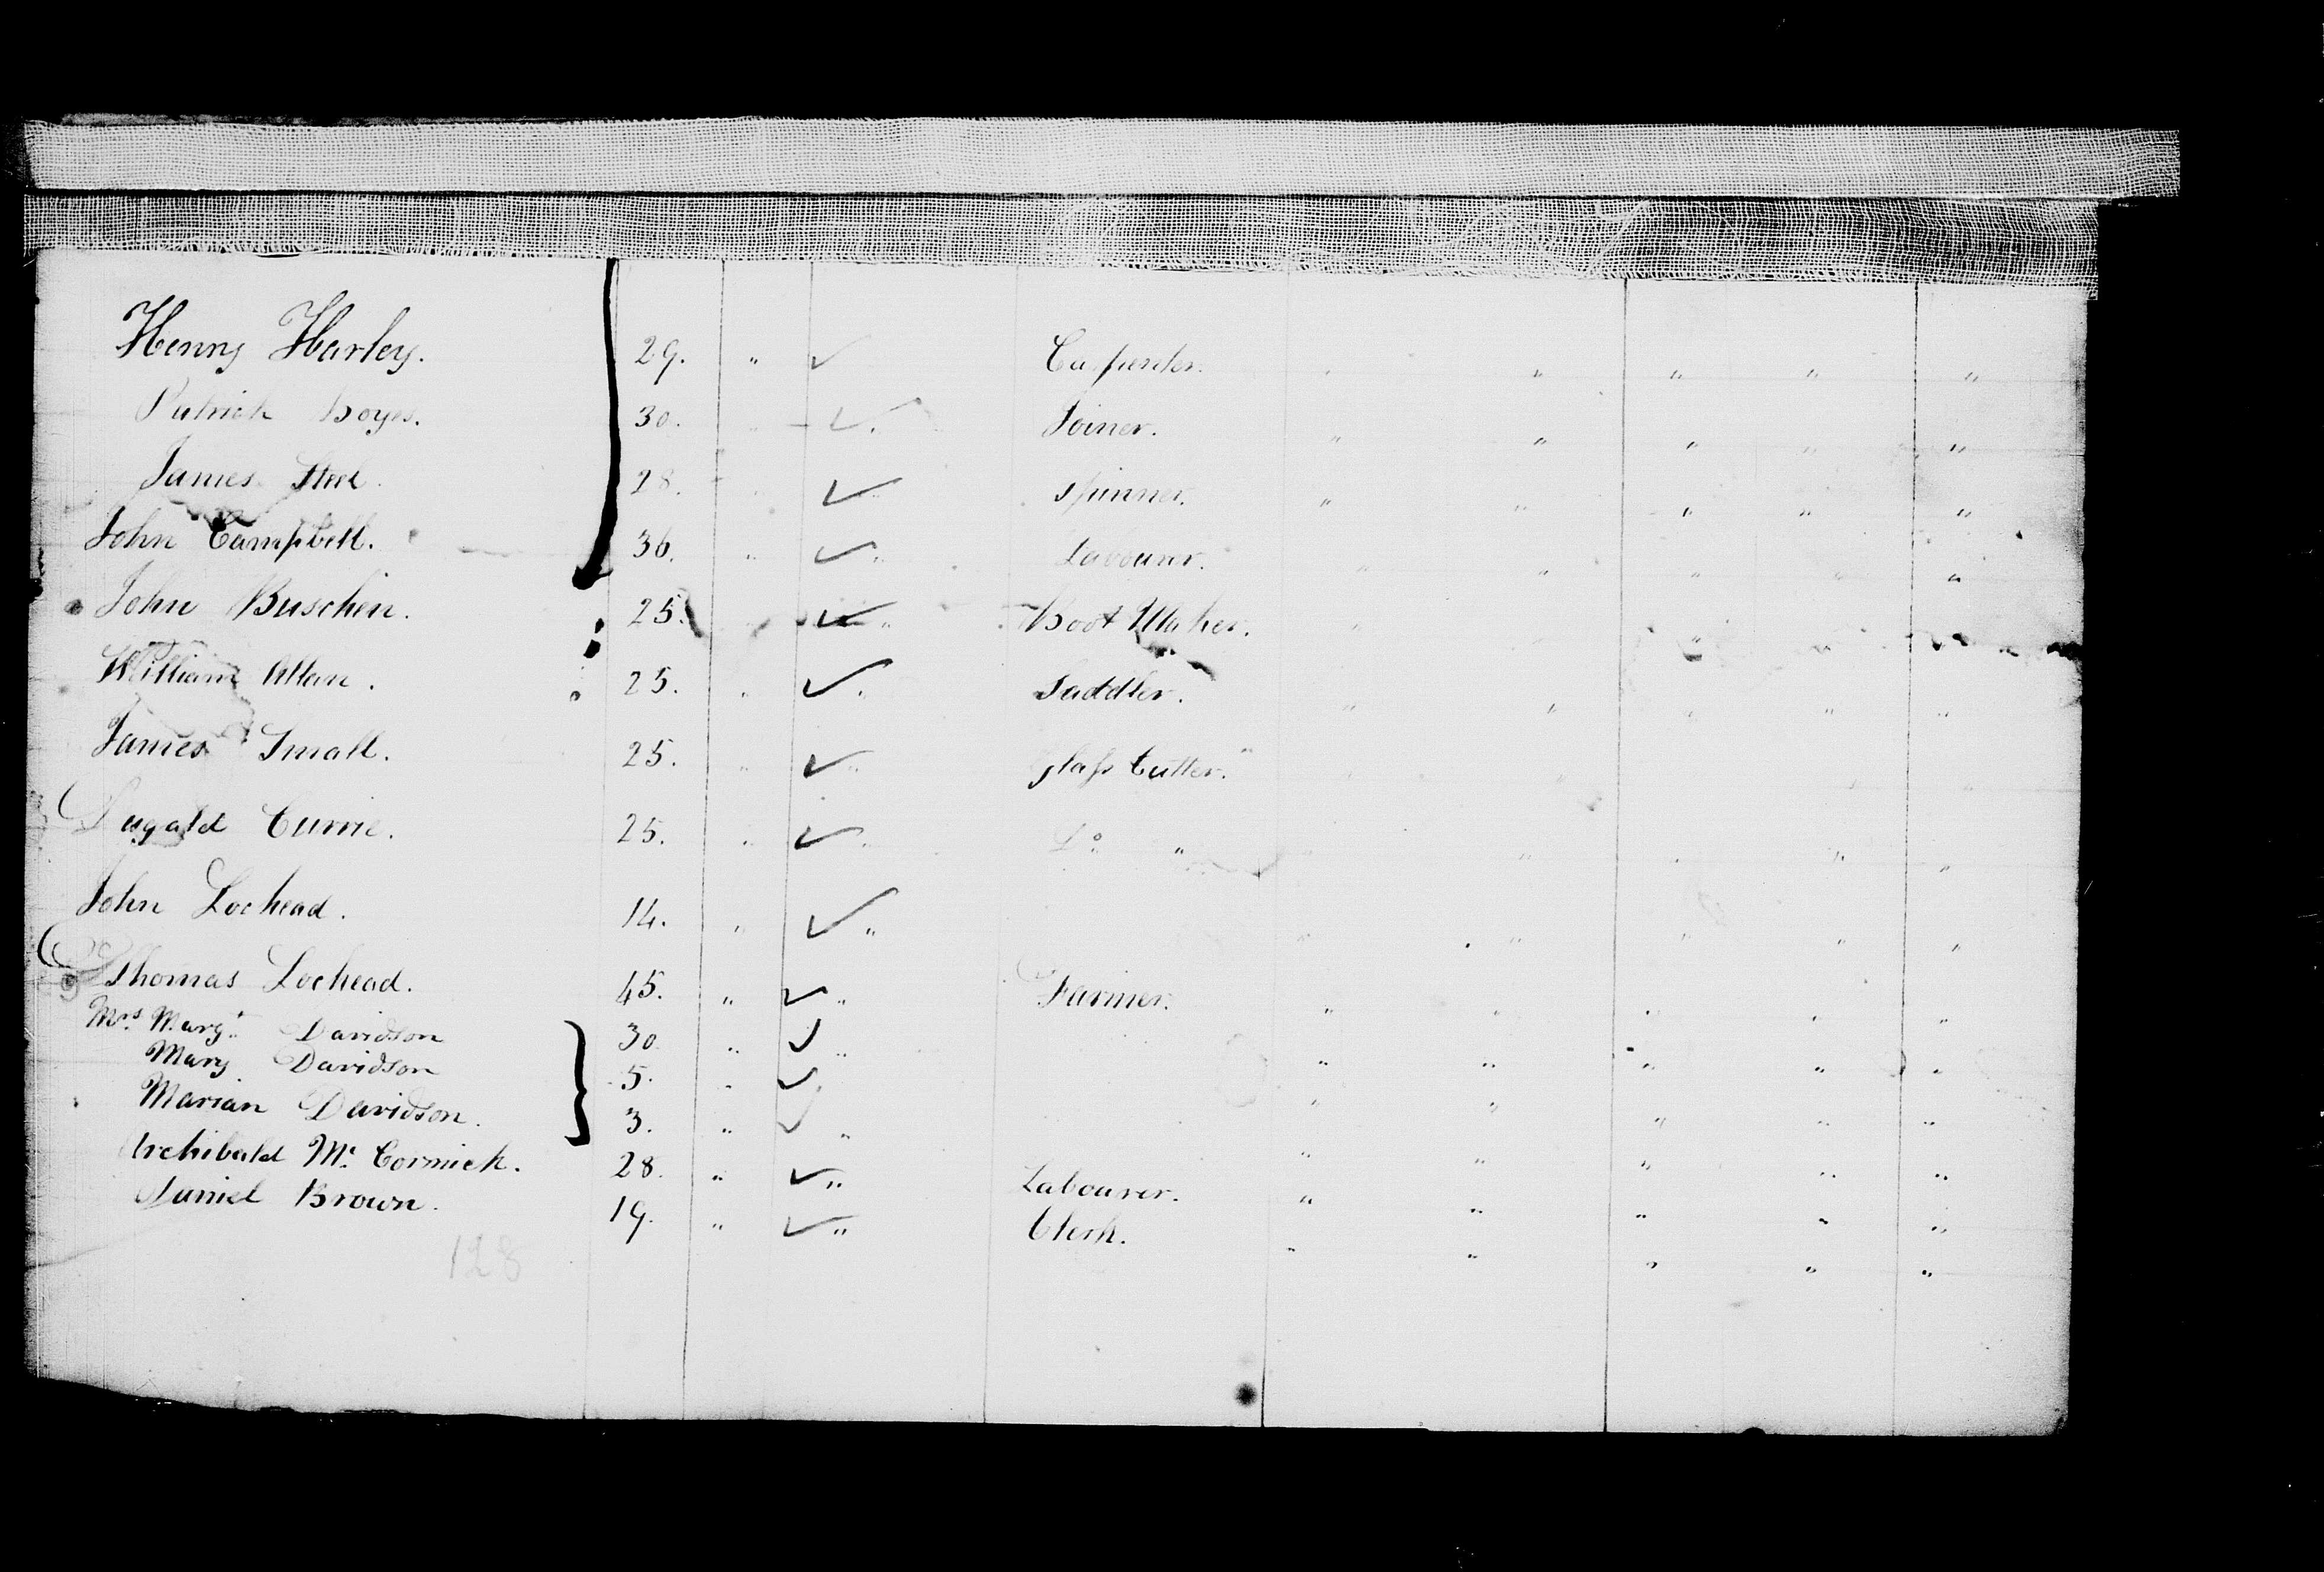 Henry Harley. 29. " ✓ Carpenter. " " " " "
Patrick Boyes. 30. " ✓ Joiner. " " " " "
James Steel. 28. " ✓ Spinner. " " " " "
John Campbell. 36. " ✓ " Labourer. " " " " "
John Buschen. 25. " ✓ " Boot Maker. " " " " "
William Allan. 25. " ✓ " Saddler. " " " " "
James Small. 25. " ✓ " Glass Cutter. " " " "
Dugald Currie. 25. " ✓ " Do " " " " "
John Lochead. 14. " ✓ " " " " " "
Thomas Lochead. 45. " ✓ " Farmer. " " " " "
Mrs. Margt. Davidson 30 " ✓ " " " " " "
Mary Davidson 5. " ✓ " " " " " "
Marian Davidson. 3. " ✓ " " " " " "
Archibald Mc. Cormick. 28. " ✓ " Labourer. " " " " "
Daniel Brown. 19. " ✓ " Clerk. " " " " "
128